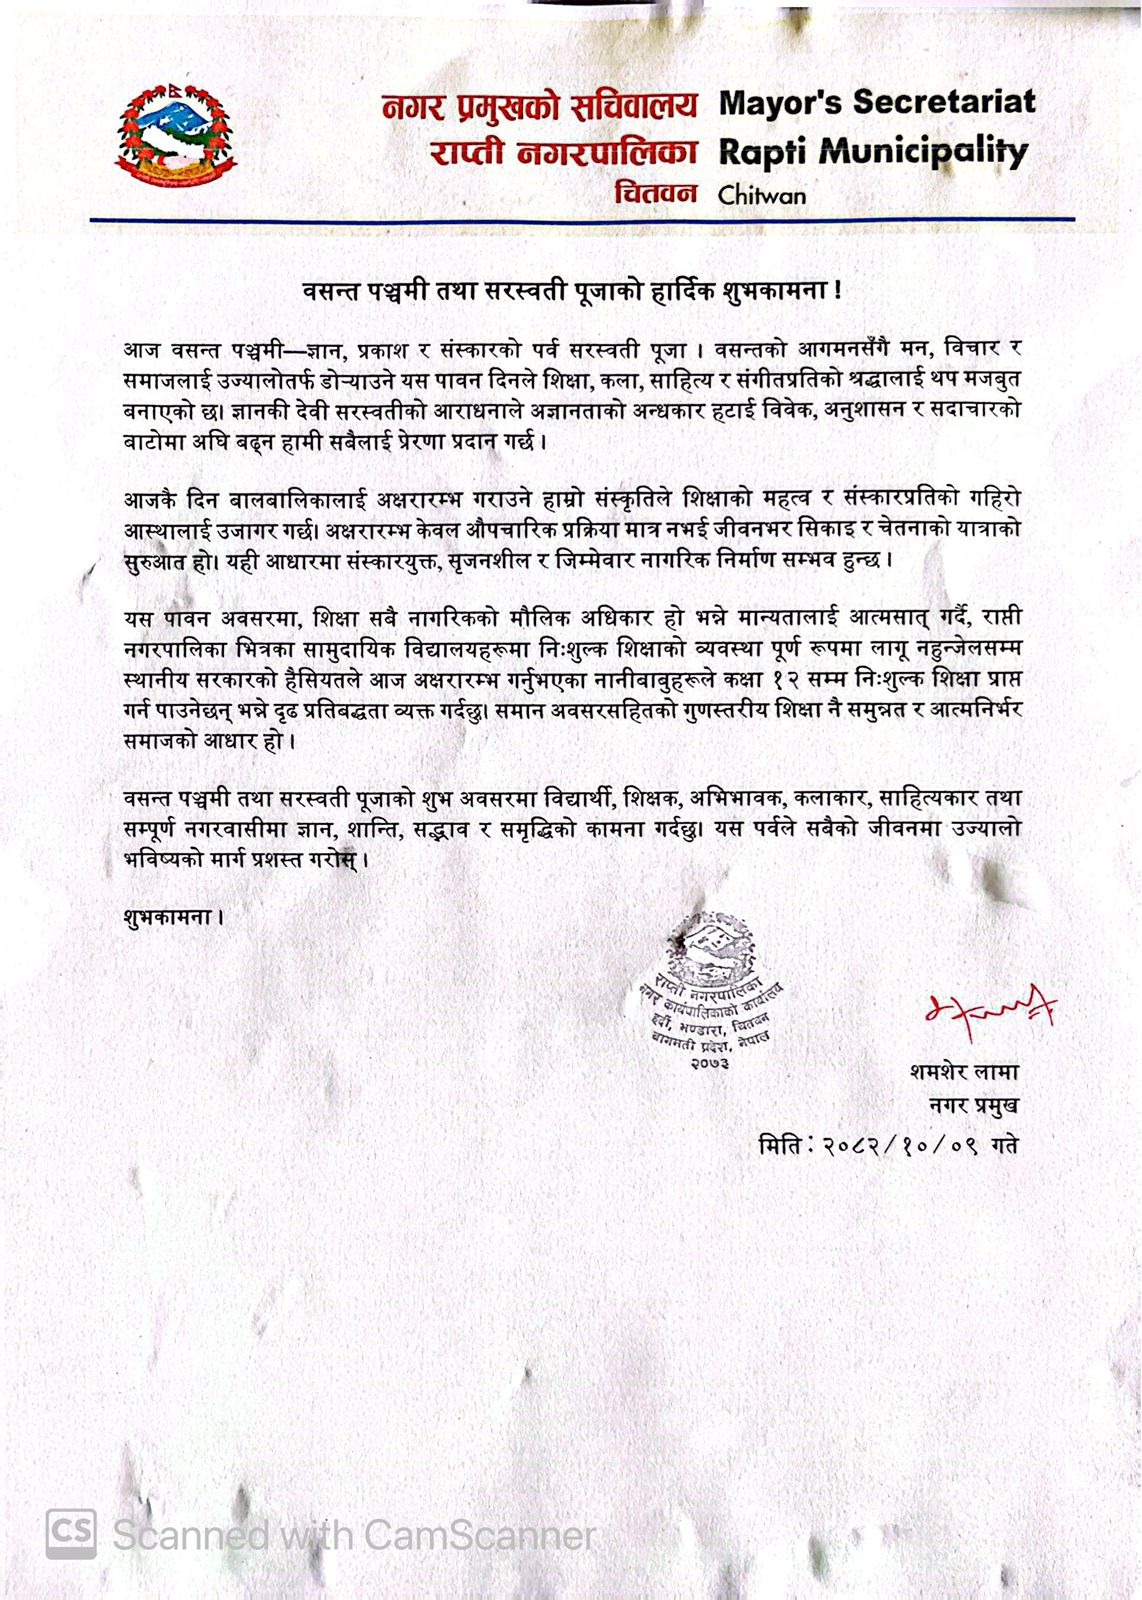 नगर प्रमुखको सचिवालय Mayor's Secretariat
राप्ती नगरपालिका Rapti Municipality
चितवन Chitwan
वसन्त पञ्चमी तथा सरस्वती पूजाको हार्दिक शुभकामना !
आज वसन्त पञ्चमी—ज्ञान, प्रकाश र संस्कारको पर्व सरस्वती पूजा । वसन्तको आगमनसँगै मन, विचार र
समाजलाई उज्यालोतर्फ डोर्‍याउने यस पावन दिनले शिक्षा, कला, साहित्य र संगीतप्रतिको श्रद्धालाई थप मजबुत
बनाएको छ। ज्ञानकी देवी सरस्वतीको आराधनाले अज्ञानताको अन्धकार हटाई विवेक, अनुशासन र सदाचारको
बाटोमा अघि बढ्न हामी सबैलाई प्रेरणा प्रदान गर्छ ।
आजकै दिन बालबालिकालाई अक्षरारम्भ गराउने हाम्रो संस्कृतिले शिक्षाको महत्व र संस्कारप्रतिको गहिरो
आस्थालाई उजागर गर्छ। अक्षरारम्भ केवल औपचारिक प्रक्रिया मात्र नभई जीवनभर सिकाइ र चेतनाको यात्राको
सुरुआत हो। यही आधारमा संस्कारयुक्त, सृजनशील र जिम्मेवार नागरिक निर्माण सम्भव हुन्छ ।
यस पावन अवसरमा, शिक्षा सबै नागरिकको मौलिक अधिकार हो भन्ने मान्यतालाई आत्मसात् गर्दै, राप्ती
नगरपालिका भित्रका सामुदायिक विद्यालयहरूमा निःशुल्क शिक्षाको व्यवस्था पूर्ण रूपमा लागू नहुन्जेलसम्म
स्थानीय सरकारको हैसियतले आज अक्षरारम्भ गर्नुभएका नानीबाबुहरूले कक्षा १२ सम्म निःशुल्क शिक्षा प्राप्त
गर्न पाउनेछन् भन्ने दृढ प्रतिबद्धता व्यक्त गर्दछु। समान अवसरसहितको गुणस्तरीय शिक्षा नै समुन्नत र आत्मनिर्भर
समाजको आधार हो ।
वसन्त पञ्चमी तथा सरस्वती पूजाको शुभ अवसरमा विद्यार्थी, शिक्षक, अभिभावक, कलाकार, साहित्यकार तथा
सम्पूर्ण नगरवासीमा ज्ञान, शान्ति, सद्भाव र समृद्धिको कामना गर्दछु। यस पर्वले सबैको जीवनमा उज्यालो
भविष्यको मार्ग प्रशस्त गरोस् ।
शुभकामना ।
राप्ती नगरपालिका
नगर कार्यपालिकाको कार्यालय
इर्दी, भण्डारा, चितवन
बागमती प्रदेश, नेपाल
२०७३
शमशेर लामा
नगर प्रमुख
मिति : २०८२/१०/०९ गते
CS Scanned with CamScanner